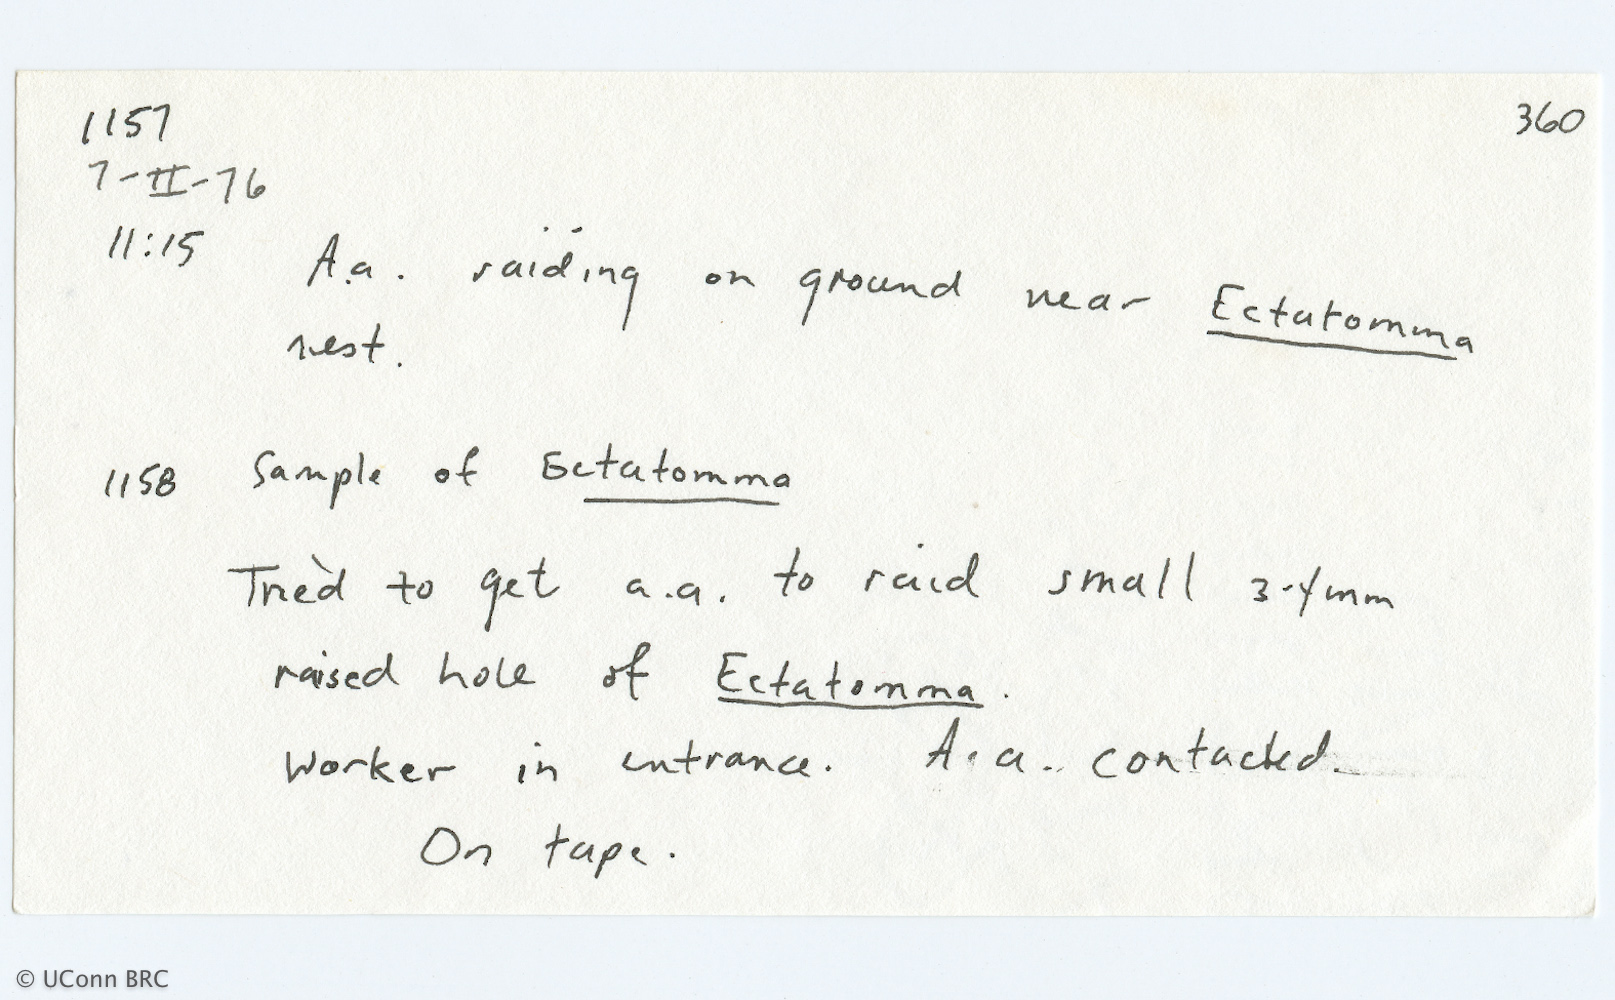 1157
360
7-II-76
11:15 A.a. raiding on ground near Ectatomma
nest.
1158 Sample of Ectatomma
Tried to get a.a. to raid small 3-4mm
raised hole of Ectatomma.
Worker in entrance. A.a. contacted.
On tape.
© UConn BRC